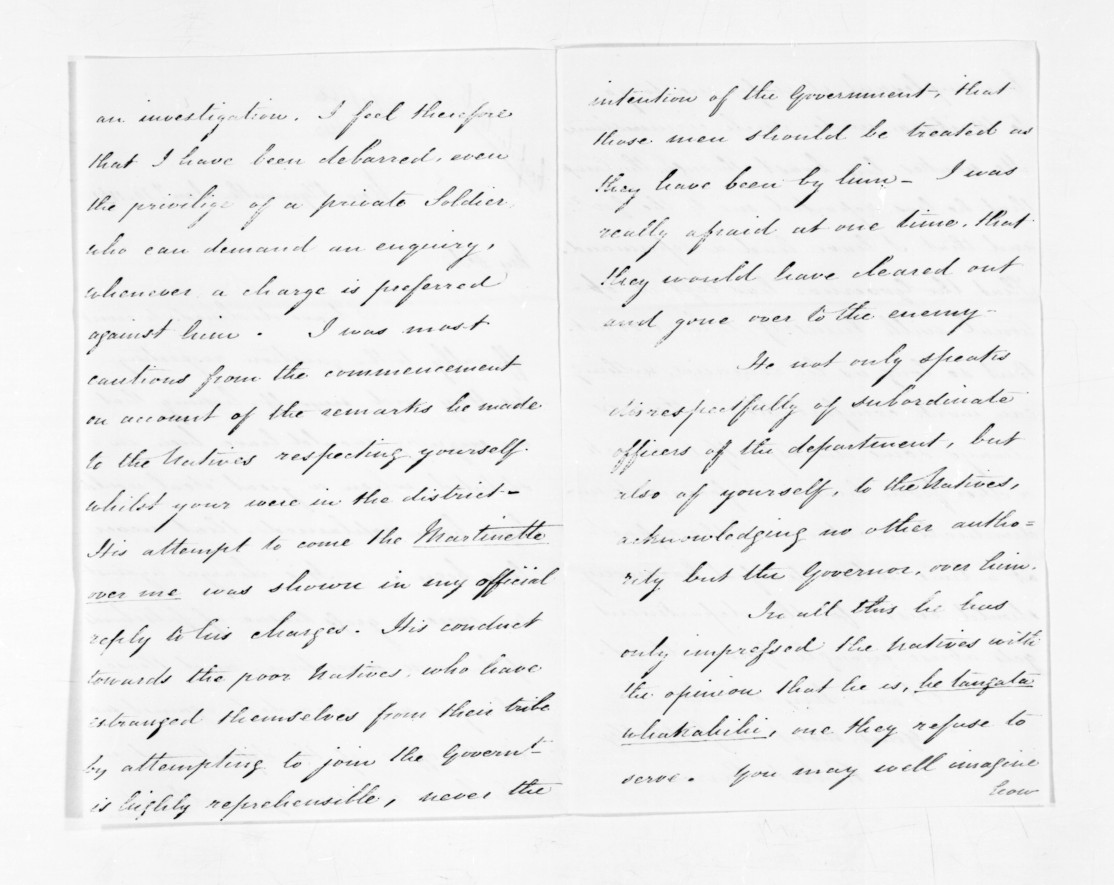 an investigation. I feel therefore
that I have been debarred, even
the privilige of a private Soldier,
who can demand an enquiry,
whenever a charge is preferred
against him. I was most
cautious from the commencement
on account of the remarks he made
to the Natives respecting yourself.
whilst your were in the district-
His attempt to come the Martinette
over me was shown in my official
reply to his charges. His conduct
towards the poor Natives, who have
estranged themselves from their tribe
by attempting to join the Governt
is highly reprehensible, never the
intention of the Government, that
those men should be treated as
they have been by him- I was
really afraid at one time, that
they would have cleared out
and gone over to the enemy-
He not only speaks
disrespectfully of subordinate
officers of the department, but
also of yourself, to the Natives,
acknowledging no other autho=
rity but the Governor, over him.
In all this he has
only impressed the Natives with
the opinion that he is, he tangata
whakahihi, one they refuse to
serve. You may well imagine
how